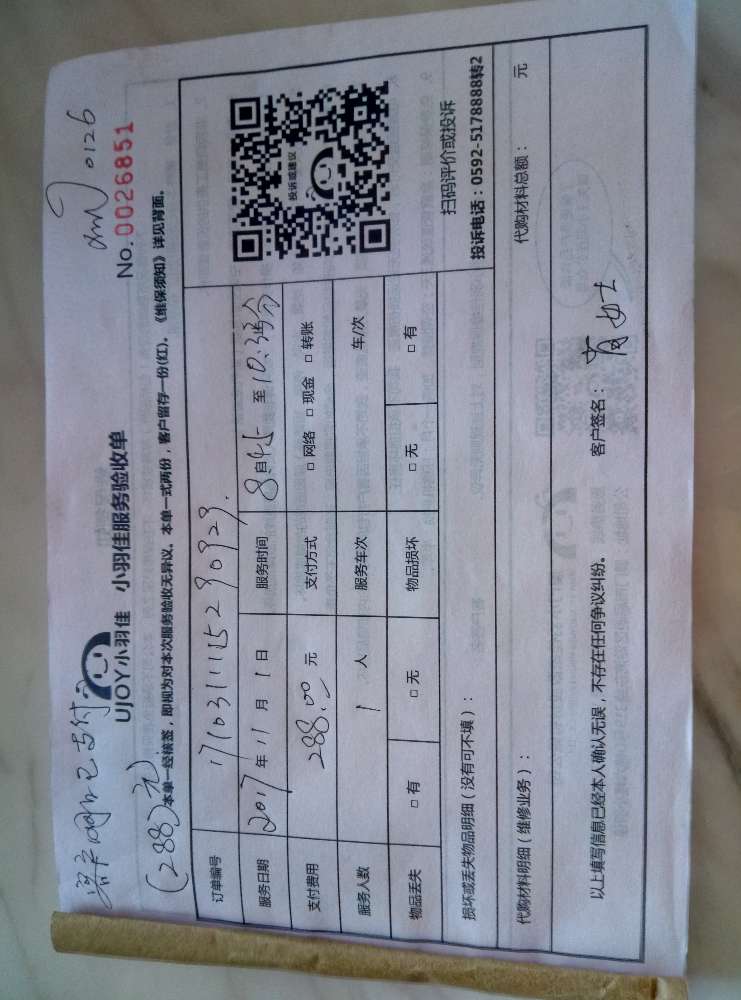 已支付
(288)元
0126
No.0026851
UJOY小羽佳 小羽佳服务验收单
本单一经核签，即视为对本次服务验收无异议。本单一式两份，客户留存一份(红)。《维保须知》详见背面。
订单编号 171031115290929.
服务日期 2017年11月1日 服务时间 至10:35分
支付费用 288.00元 支付方式 □网络 □现金 □转账
服务人数 1人 服务车次 车/次
物品丢失 □有 □无 物品损坏 □无 □有
投诉或建议
扫码评价或投诉
投诉电话：0592-5178888转2
损坏或丢失物品明细（没有可不填）：
代购材料明细（维修业务）： 代购材料总额： 元
以上填写信息已经本人确认无误，不存在任何争议纠纷。 客户签名： 女士